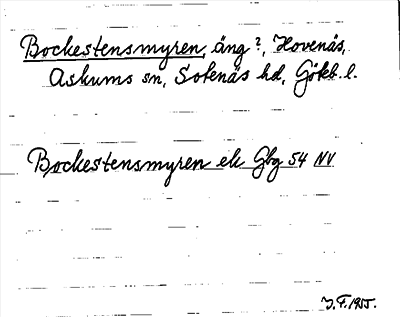 Bockestensmyren, äng?, Hovenäs,
Askums sn, Sotenäs hd, Göteb. l.
Bockestensmyren ek Gbg 54 NV
J. F. 1955.